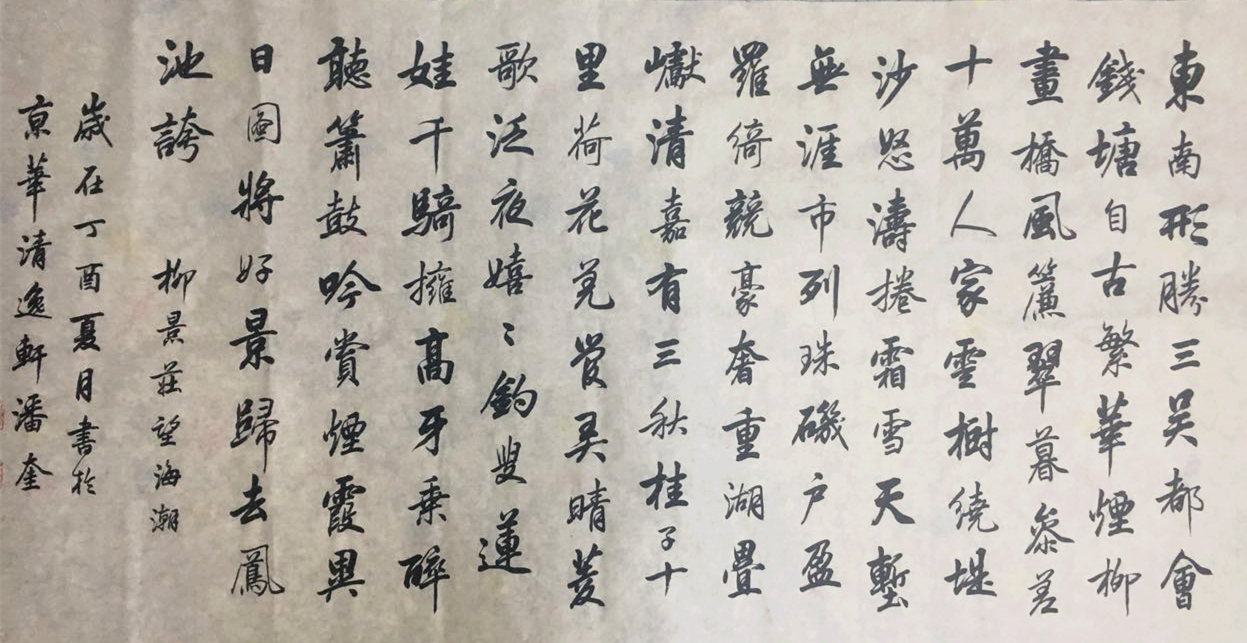 東南形勝三吴都會
錢塘自古繁華煙柳
畫橋風簾翠暮叅差
十萬人家雲樹繞堤
沙怒濤捲霜雪天塹
無涯市列珠磯户盈
羅綺競豪奢重湖疊
巘清嘉有三秋桂子十
里荷花羌管弄晴菱
歌泛夜嬉〻釣叟蓮
娃千騎擁高牙乗醉
聽簫鼓吟賞煙霞異
日圖將好景歸去鳳
池誇 柳景莊望海潮
歲在丁酉夏月書於
京華清逸軒潘奎